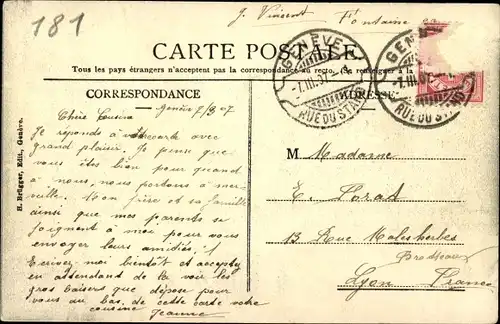 181
J. Vincent Fontaine
CARTE POSTALE
Tous les pays étrangers n'acceptent pas la correspondance au recto. (Se renseigner à la
GENÈVE
1.III.07
RUE DU STAND
GENÈVE
1.III.07
RUE DU STAND
CORRESPONDANCE
ADRESSE
Genève 7/3 07
Chère Cousine
Je réponds à votre carte avec
grand plaisir. Je pense que
vous êtes bien pour quand à
nous, nous portons à mer-
veille. Mon frère et sa famille
ainsi que mes parents se
joignent à moi pour vous
envoyer leurs amitiés.
Ecrivez moi bientôt et acceptez
en attendant de la voir les
gros baisers que dépose pour
vous au bas de cette carte votre
cousine Jeanne
M Madame
E. Forat
13 Rue Malesherbes
Brotteaux
Lyon France
H. Brügger, Edit., Genève.